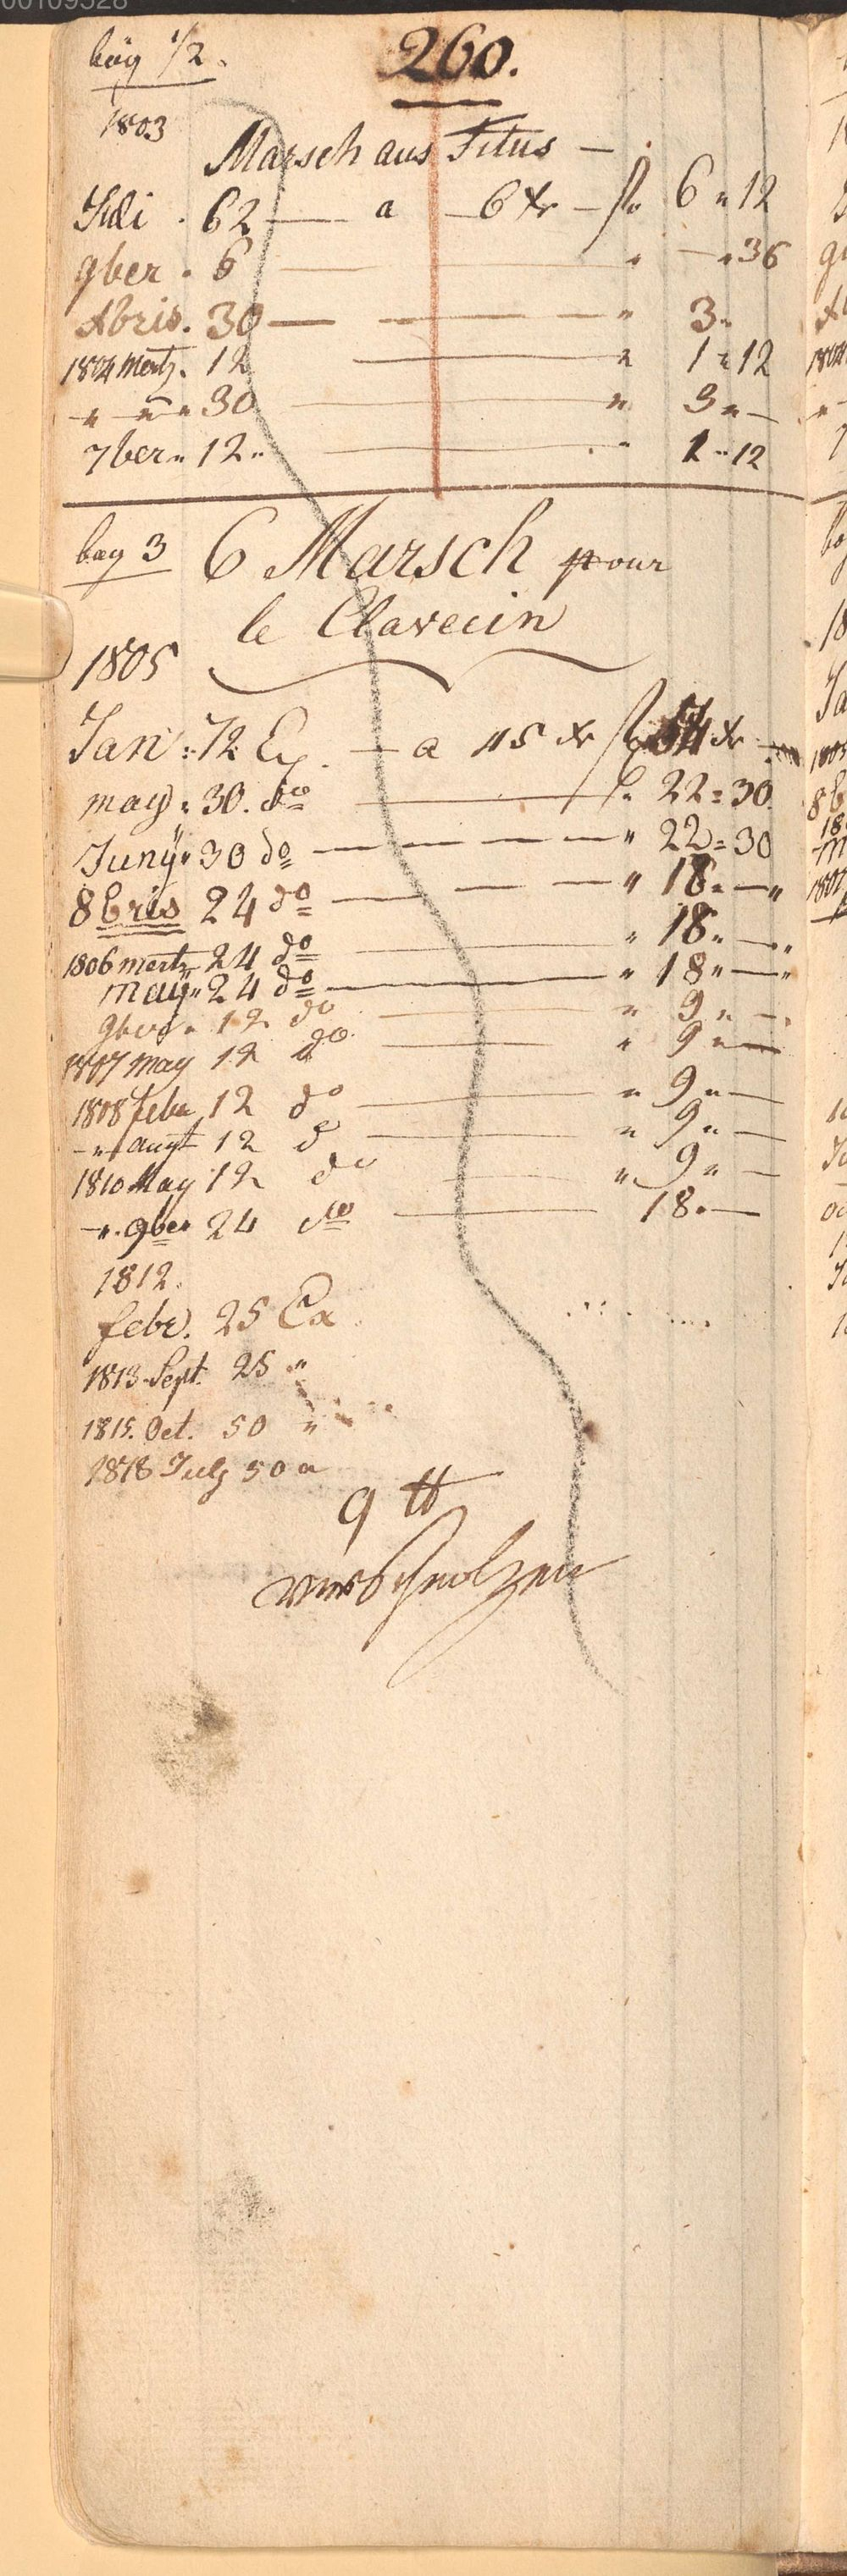 00109528
bög 1/2.
260.
1803
Marsch aus Titus —
Juli . 62 — a — 6 xr — fl 6 " 12
9ber . 6 — " — " 36
Xbris. 30 — — — " 3 "
1804 Mertz. 12 — " 1 " 12
" " " 30 — " 3 " —
7ber " 12 " — " 1 " 12
bog 3 6 Marsch pour
le Clavecin
1805
Jan : 72 Ex. — a 45 xr fl 54 xr
may : 30. do — fl. 22 = 30
Juny " 30 do — — — " 22 = 30
8bris 24 do — — — " 18 " — "
1806 mertz 24 do — " 18 " — "
may " 24 do — " 18 " — "
9ber . 12 do — " 9 " —
1807 May 12 do — " 9 " —
1808 febr 12 do — " 9 " —
— " augt 12 do — " 9 " —
1810 May 12 do — " 9 " —
— ". 9ber 24 do — 18 " —
1812.
febr. 25 Ex
1813. Sept. 25 "
1815. Oct. 50 "
1818 July 50 "
9 ℔
verschmolzen